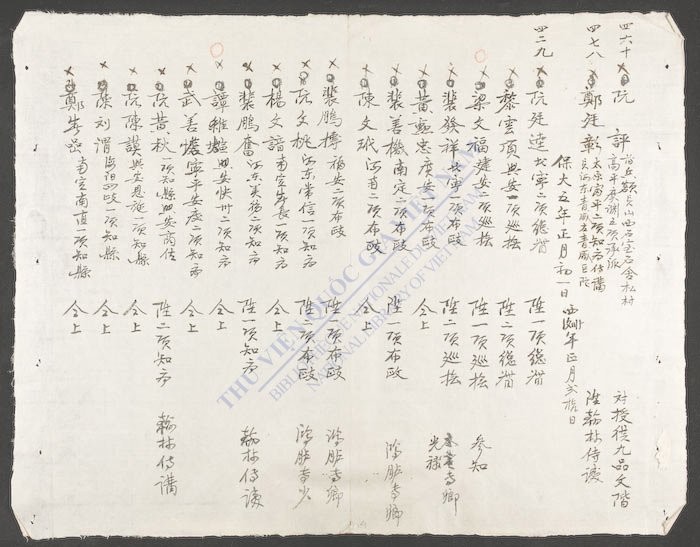 四六十 阮評 山西石室石舍松村 對授從九品文階
高平廣淵五項承派
四七八 鄭廷彰 太原富平二項知府侍講 陞翰林侍讀
河東青威
保大五年正月初一日 西 年正月 日
四二九 阮廷達 北寧二項總督 陞一項總督
黎雲頂 興安一項巡撫 陞二項總督
梁文福 建安二項巡撫 陞一項巡撫 參知
裴發祥 北寧一項布政 陞二項巡撫 寺卿
光祿
黃憲忠 廣安一項布政 仝上
裴善機 南定二項布政 陞一項布政 鴻臚寺卿
陳文珉 河南二項布政 仝上
裴鵬摶 福安二項布政 陞一項布政 鴻臚寺卿
阮文桃 河東常信一項知府 陞二項布政 鴻臚寺少
楊文諧 南定春長一項知府 仝上
裴鵬奮 河東美德二項知府 陞一項知府 翰林侍讀
譚維 興安快州二項知府 仝上
武善 寧平安慶二項知府 仝上
阮黃秋 一項知縣興安商佐 陞二項知府 翰林侍講
阮陳謨 興安恩施一項知縣 仝上
陳列謂 海陽四岐一項知縣 仝上
鄭 南定南直一項知縣 仝上
THƯ VIỆN QUỐC GIA VIỆT NAM
BIBLIOTHÈQUE NATIONALE DU VIETNAM
NATIONAL LIBRARY OF VIETNAM